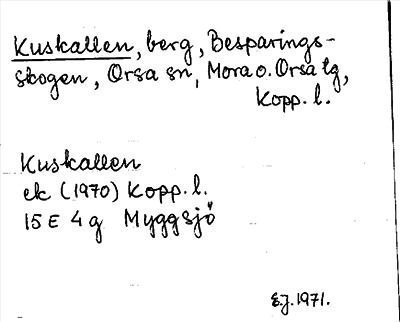 Kuskallen, berg, Besparings-
skogen, Orsa sn, Mora o. Orsa tg,
Kopp. l.
Kuskallen
ek (1970) Kopp. l.
15 E 4 g Myggsjö
E.J. 1971.